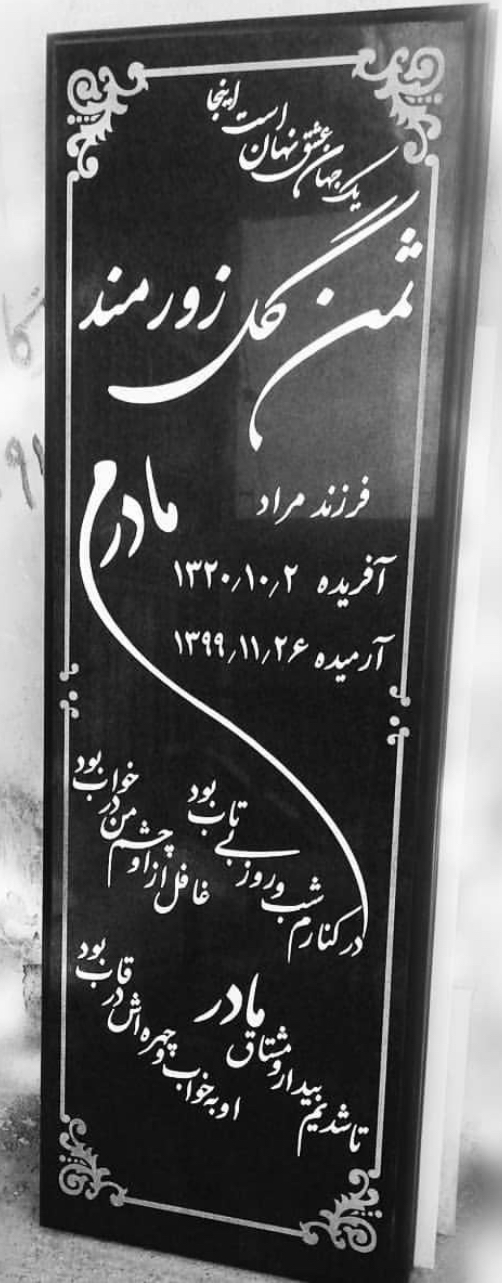 یک جهان عشق نهان است اینجا
ثمن گل زورمند
مادرم
فرزند مراد
آفریده ۱۳۲۰٫۱۰٫۲
آرمیده ۱۳۹۹٫۱۱٫۲۶
در کنارم شب و روز بی تاب بود
غافل از او چشم من در خواب بود
تا شدیم بیدار و مشتاق مادر
او به خواب و چهره اش در قاب بود